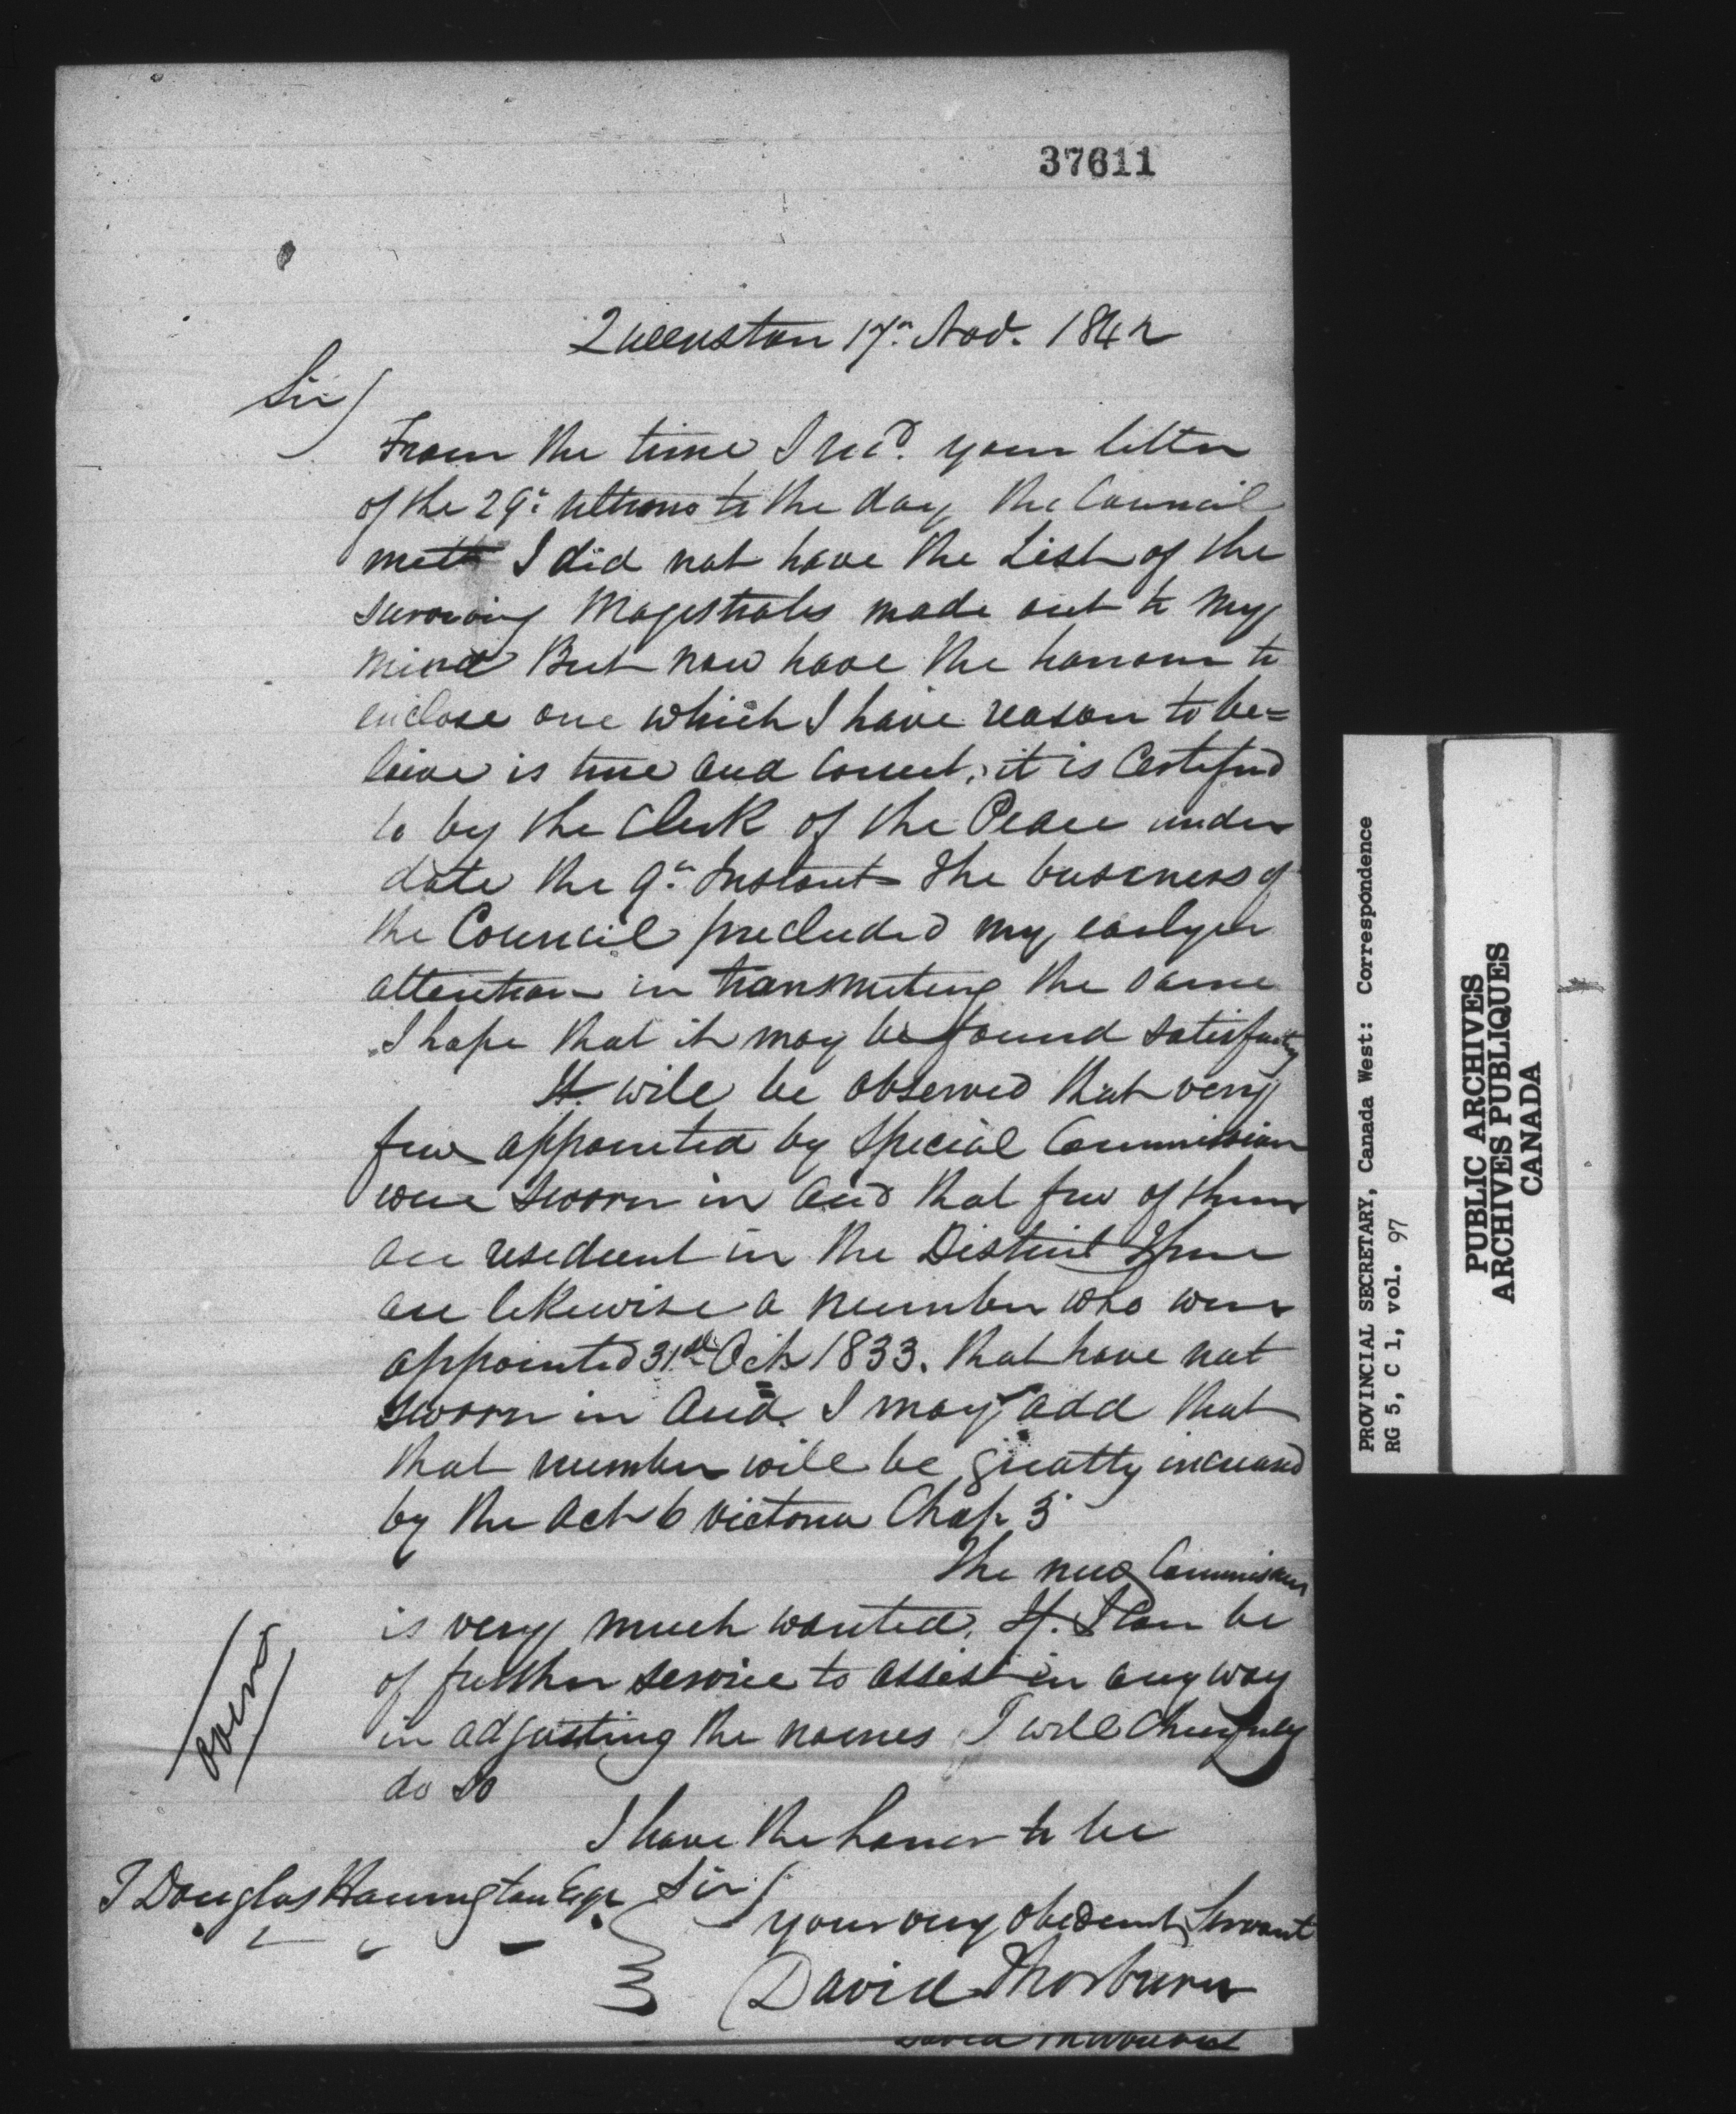 37611
Queenston 17th Nov. 1842
Sir
From the time I recd. your letter
of the 29th ultimo to the day the Council
mett I did not have the List of the
surviving Magistrates made out to my
mind But now have the honour to
enclose one which I have reason to be=
leive is true and correct, it is Certified
to by the Clerk of the Peace under
date the 9th Instant The buseness of
the Council precluded my earlyer
attention in transmiting the same
I hope that it may be found satisfactory
It will be observed that very
few appointed by Special Commission
were sworn in and that few of them
are resedent in the District There
are likewise a number who were
appointed 31st Oct 1833. that have not
sworn in And I may add that
that number will be greatly increased
by the Act 6 Victoria Chap. 3
The new Commission
is very much wanted. If I can be
of further service to assist in any way
in adjusting the names I will Cheerfully
do so
over
I have the honor to be
T Douglas Harrington Esqr Sir
your very obedient Servant
David Thorburn
David Thorburn
PROVINCIAL SECRETARY, Canada West: Correspondence
RG 5, C 1, vol. 97
PUBLIC ARCHIVES
ARCHIVES PUBLIQUES
CANADA